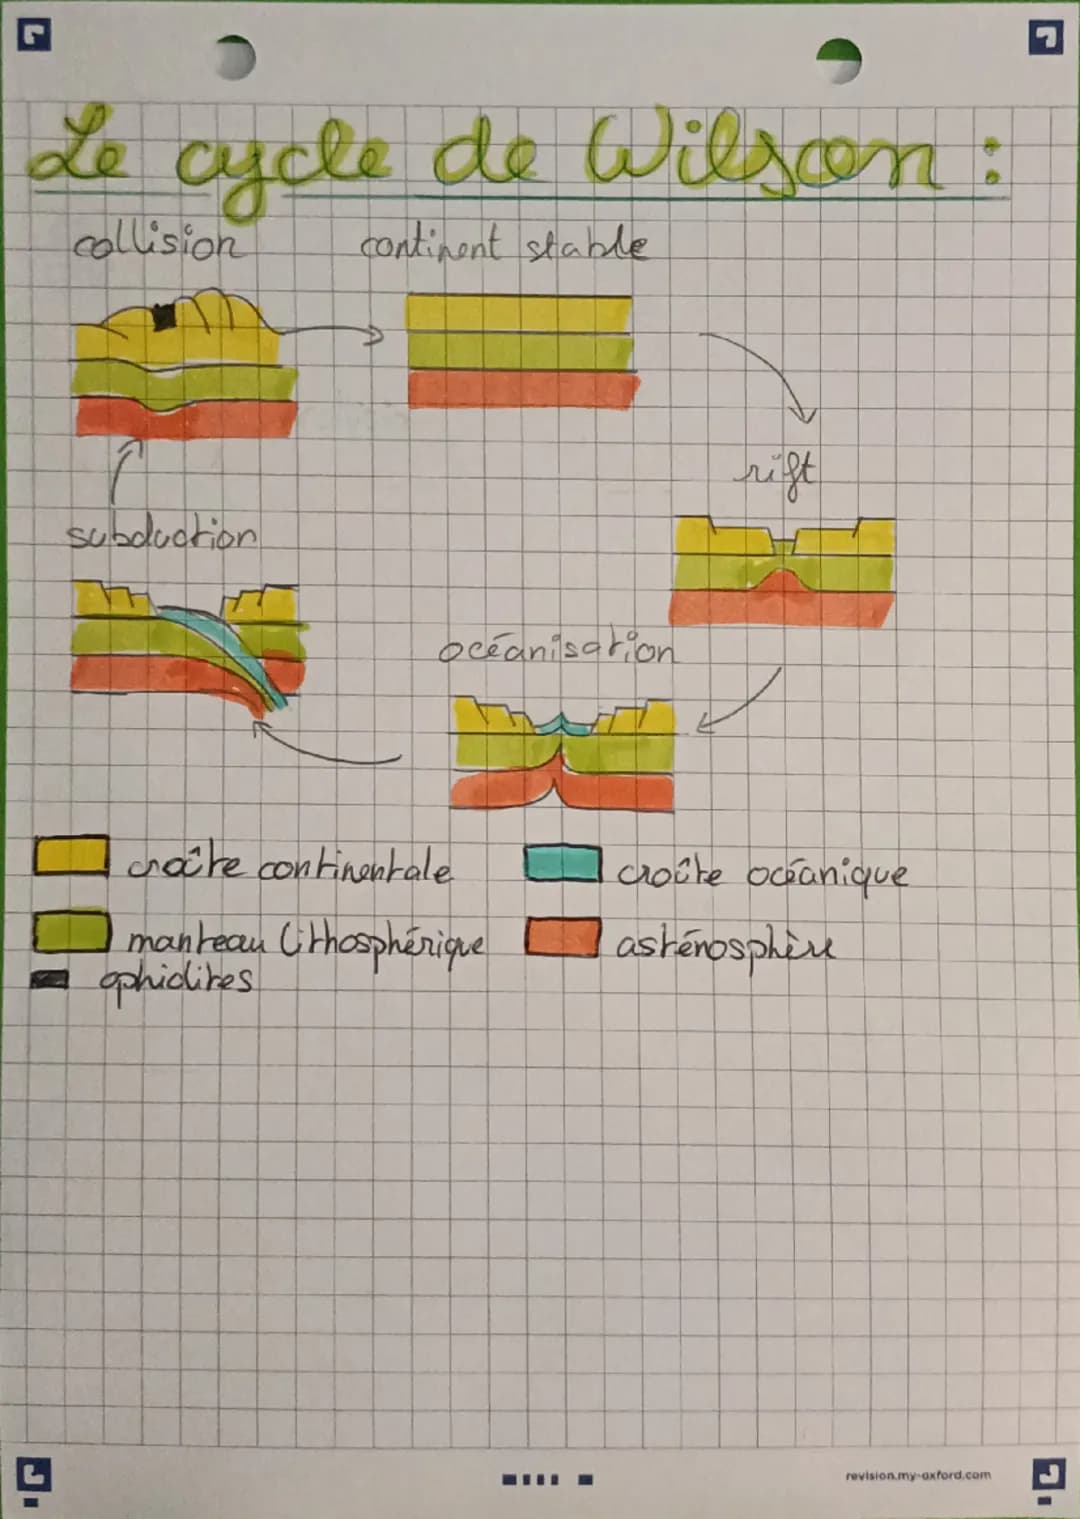 Le cycle de Wilson :
collision
continent stable
rift
subduction
océanisation
croûte continentale
croûte océanique
manteau lithosphérique
asthénosphère
ophiolites
revision.my-oxford.com